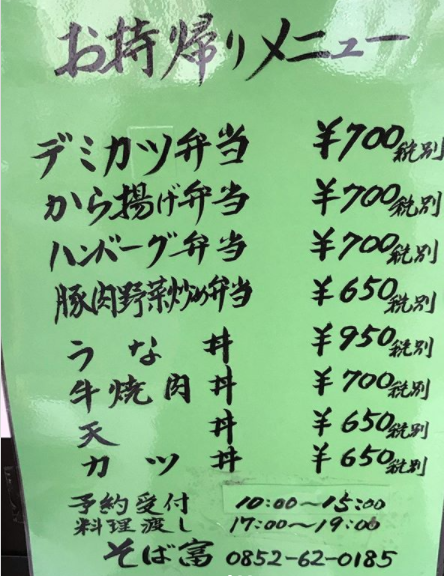 お持帰りメニュー
デミカツ弁当 ¥700税別
から揚げ弁当 ¥700税別
ハンバーグ弁当 ¥700税別
豚肉野菜炒め弁当 ¥650税別
うな丼 ¥950税別
牛焼肉丼 ¥700税別
天丼 ¥650税別
カツ丼 ¥650税別
予約受付 10:00~15:00
料理渡し 17:00~19:00
そば富 0852-62-0185